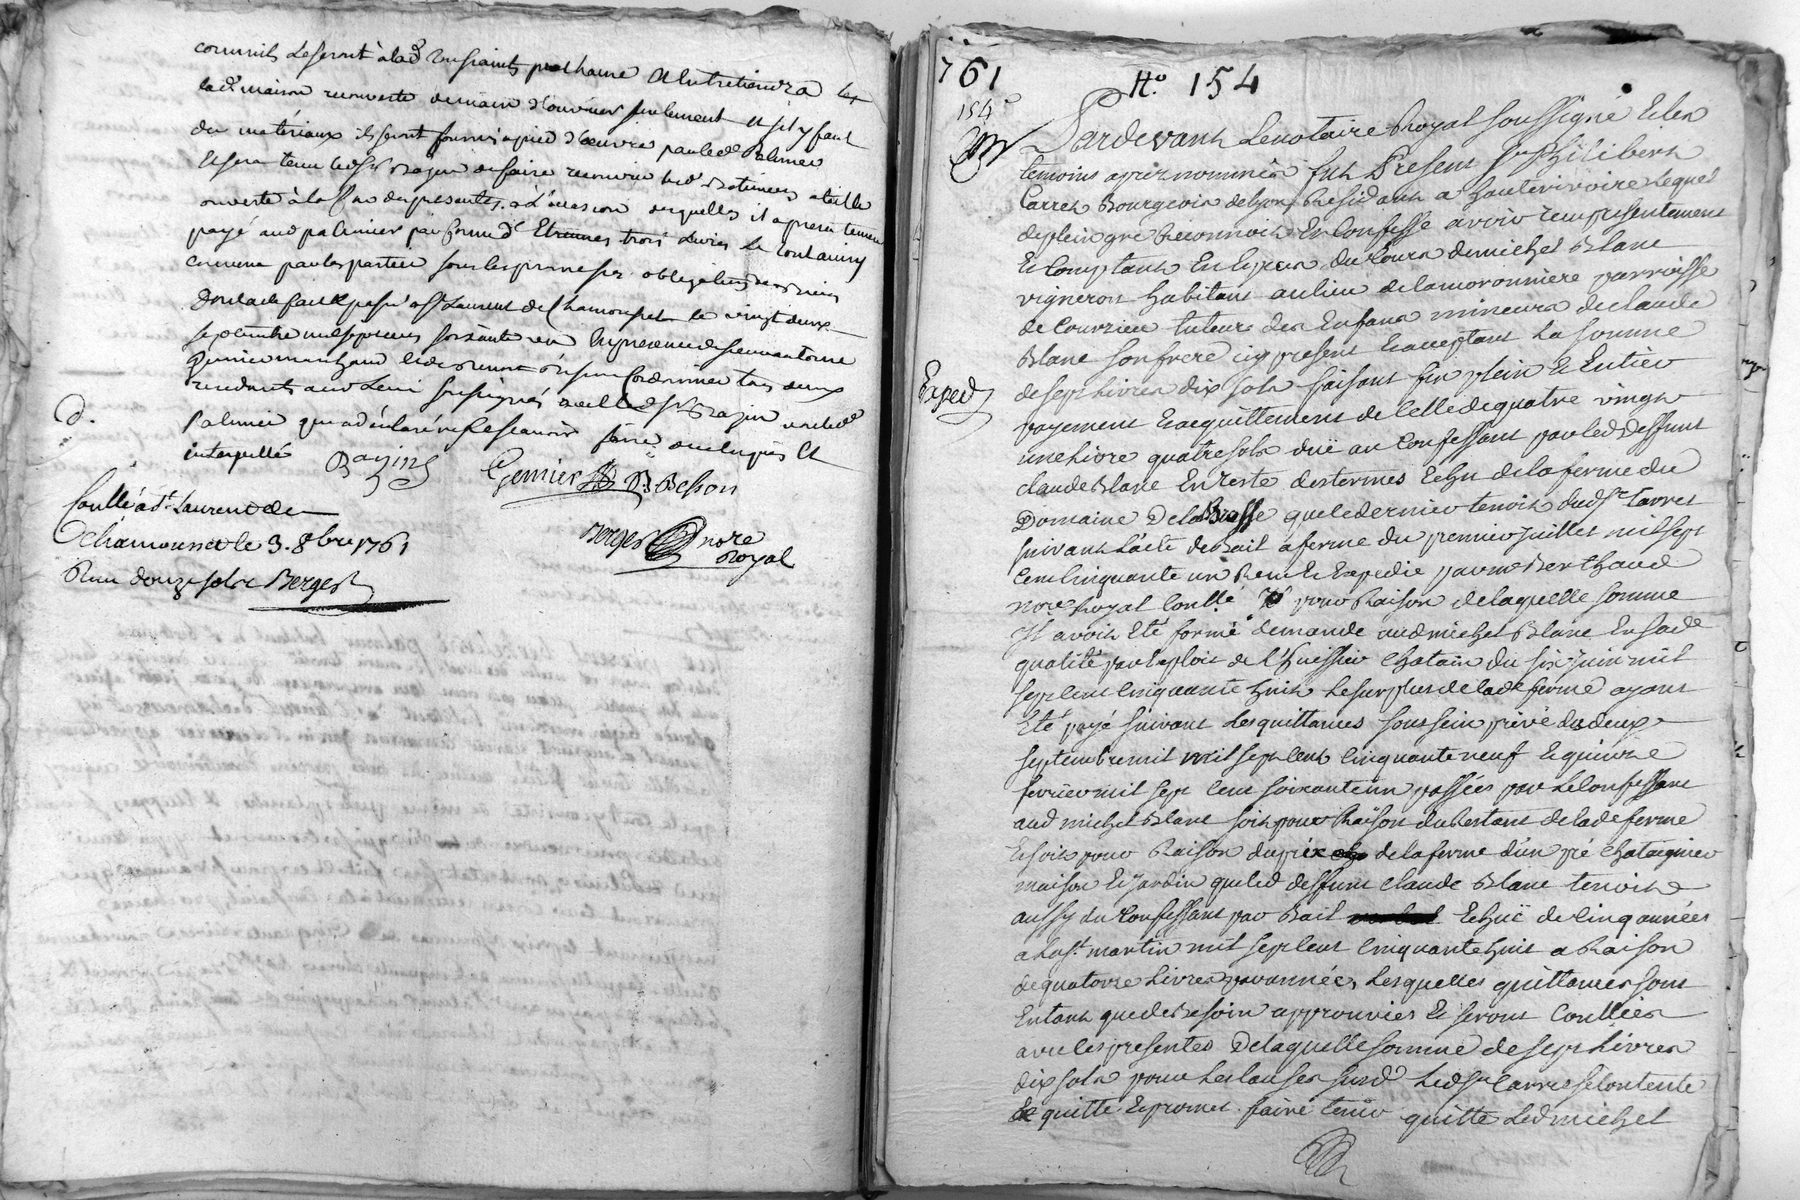 commis le seront à lad. Toussaints prochaine et entretiendra
lad. maison recouverte de main d'ouvrier seulement et s'il y faut
du matériaux ils seront fournis à pied d'oeuvre par led. Palmier
et sera tenu led. Sr Bazin de faire recouvrir led. Batiment
ouverte à la des presentes à l'occasion desquelles il a presentement
payé aud. palmier par forme d'Etrennes trois Livres Le tout ainsy
convenu par les parties sous les promesses obligations
dont acte fait & passé a St. Laurent de Chamousset le vingt deux
septembre mil sept cens soixante un En presence de
marchand et de Besson Cordonnier tous deux
residants aud. Lieu soussignés avec led. Sr Bazin non led.
Palmier qui a déclaré ne scavoir faire enquis Et
interpellé
Bazin
Genier B: Besson
Berger nore
Royal
D.
Conllé à St. Laurent de
Chamousset le 3. 8bre 1761
Reçu douze sols Berger
761
N.o 154
154e
Pardevant Le notaire Royal soussigné Et les
temoins apres nommés fut Present Sr Philibert
Carret Bourgeois de Lyon Residant a hauterivoire Lequel
de plein gré Reconnoit Et Confesse avoir reçu presentement
Et Comptant En Especes du Cours de michel Blanc
vigneron habitant au lieu de lamoronniere parroisse
de Courzieu tuteur des Enfans mineurs de claude
Blanc son frere icy present Et acceptant La somme
de sept Livres dix sols faisant fin plein Et Entier
Exped
payement Et acquittement de Celle de quatre vingt
une Livre quatre sols duë au Confessant par led. deffunt
claude Blanc En reste des termes Echu de la ferme du
Domaine De la Brosse que le dernier tenoit dud. Sr Carret
suivant L'acte de Bail a ferme du premier juillet mil sept
Cent Cinquante un Reçu Et Expedié par me Berthaud
nore Royal Conllé pour Raison de laquelle somme
Il avoit Eté formé demande aud michel Blanc En sade
qualité par Exploit de l'huissier Chatain du six juin mil
sept Cent Cinquante huit Le surplus de lade ferme ayant
Eté payé suivant Les quittances sous sein privé du deux
septembre mil mil sept Cent Cinquante neuf Et quinze
fevrier mil sept Cent soixante un passées par Le Confessant
aud michel Blanc soit pour Raison du Restant de lade ferme
Et soit pour Raison du prix de la ferme d'un pré Chataignier
maison Et jardin que led deffunt claude Blanc tenoit
aussy du Confessant par Bail Echuë de Cinq années
a la St. martin mil sept Cent Cinquante huit a Raison
de quatorze Livres par année, Lesquelles quittances sont
Entant que de Besoin approuvées Et seront Conllées
avec les presentes De laquelle somme de sept Livres
dix sols pour Les Causes susd. Led Sr Carret se Contente
Et quitte Et promet faire tenir quitte Led michel